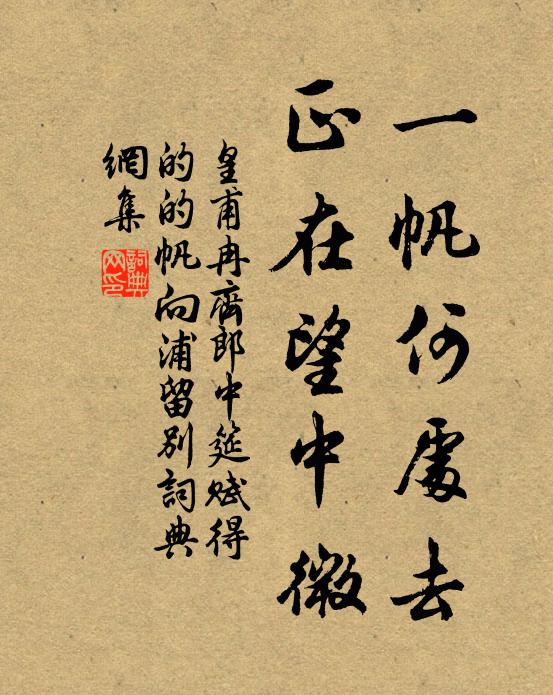 一帆何處去
正在望中微
皇甫冉齊郎中筵賦得
的的帆向浦留別詞典
網集
詞典網印